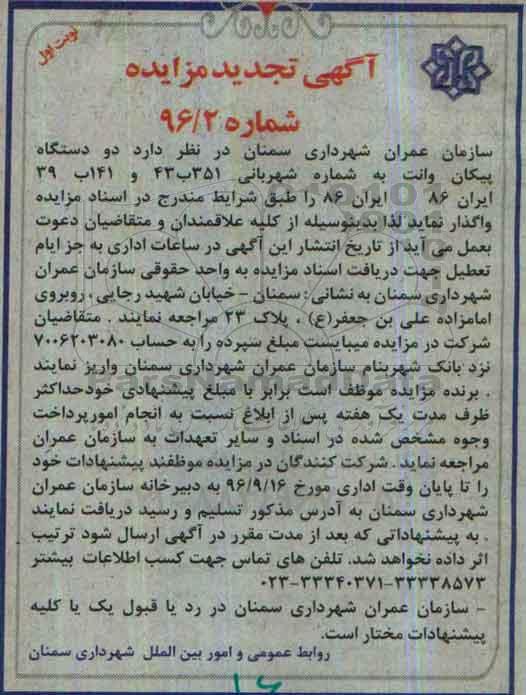 نوبت اول
آگهی تجدید مزایده
شماره ۹۶/۲
سازمان عمران شهرداری سمنان در نظر دارد دو دستگاه
پیکان وانت به شماره شهربانی ۳۵۱ب۴۳ و ۱۴۱ب ۳۹
ایران ۸۶ ایران ۸۶ را طبق شرایط مندرج در اسناد مزایده
واگذار نماید لذا بدینوسیله از کلیه علاقمندان و متقاضیان دعوت
بعمل می آید از تاریخ انتشار این آگهی در ساعات اداری به جز ایام
تعطیل جهت دریافت اسناد مزایده به واحد حقوقی سازمان عمران
شهرداری سمنان به نشانی : سمنان - خیابان شهید رجایی ، روبروی
امامزاده علی بن جعفر(ع) ، پلاک ۲۳ مراجعه نمایند . متقاضیان
شرکت در مزایده میبایست مبلغ سپرده را به حساب ۷۰۰۶۲۰۳۰۸۰
نزد بانک شهربنام سازمان عمران شهرداری سمنان واریز نمایند
. برنده مزایده موظف است برابر با مبلغ پیشنهادی خودحداکثر
ظرف مدت یک هفته پس از ابلاغ نسبت به انجام امورپرداخت
وجوه مشخص شده در اسناد و سایر تعهدات به سازمان عمران
مراجعه نماید . شرکت کنندگان در مزایده موظفند پیشنهادات خود
را تا پایان وقت اداری مورخ ۹۶/۹/۱۶ به دبیرخانه سازمان عمران
شهرداری سمنان به آدرس مذکور تسلیم و رسید دریافت نمایند
. به پیشنهاداتی که بعد از مدت مقرر در آگهی ارسال شود ترتیب
اثر داده نخواهد شد. تلفن های تماس جهت کسب اطلاعات بیشتر
۰۲۳-۳۳۳۴۰۳۷۱-۳۳۳۳۸۵۷۳
- سازمان عمران شهرداری سمنان در رد یا قبول یک یا کلیه
پیشنهادات مختار است.
روابط عمومی و امور بین الملل شهرداری سمنان
۱۶